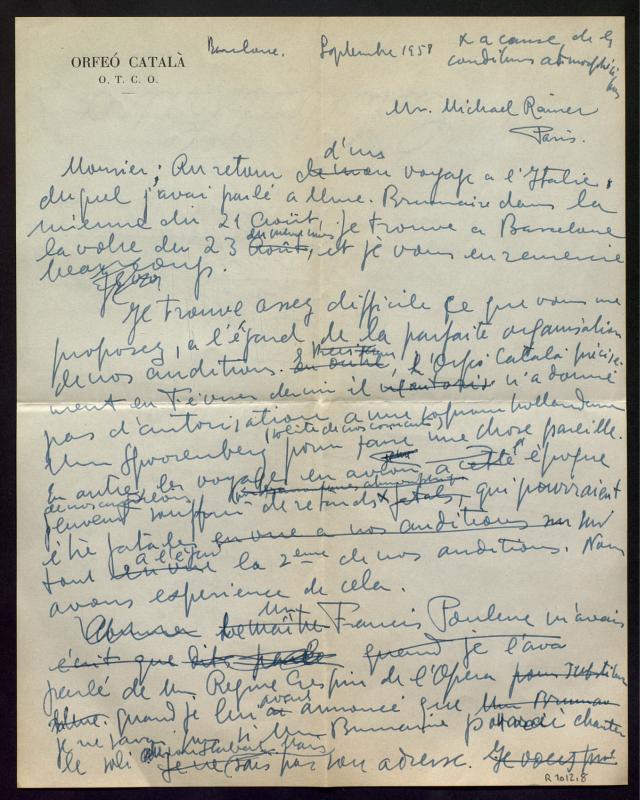 ORFEÓ CATALÀ
O. T. C. O.
Barcelone. Septembre 1958
x a cause de
conditions atmosphéri
ques
Mr. Michael Rainer
Paris.
d'un
Monsieur; Au retour de mon voyage a l'Italie,
duquel j'avai parlé a Mme. Brumaire dans la
mienne du 21 Août, je trouve a Barcelone
du même mois
la votre du 23 Août, et je vous en remercie
beaucoup.
Je trouve assez difficile ce que vous me
proposez, a l'égard de la parfaite organisation
de nos auditions. En outre, L'Orfeó Català précisé-
ment en Février dernier il n'a donné
pas d'autorisation a une soprano hollandaise
soliste de nos concerts
Mme Spoorenberg pour faire une chose pareille.
En outre, les voyages en avion a cette époque
peuvent souffrir de retards x fatals, qui pourraient
être fatales en vue a nos auditions sur
a l'égard
tout en vue la 2ème de nos auditions. Nous
avons experience de cela.
Mr.
Francis Poulenc m'avais
écrit que quand je l'ava
parlé de Mme Regine Crespin de l'Opera
avais
quand je lui annoncé que Mme Brumai
je ne savais pas si Mme Brumaire chanter
le soli
Je ne sais pas son adresse.
R 1012.8